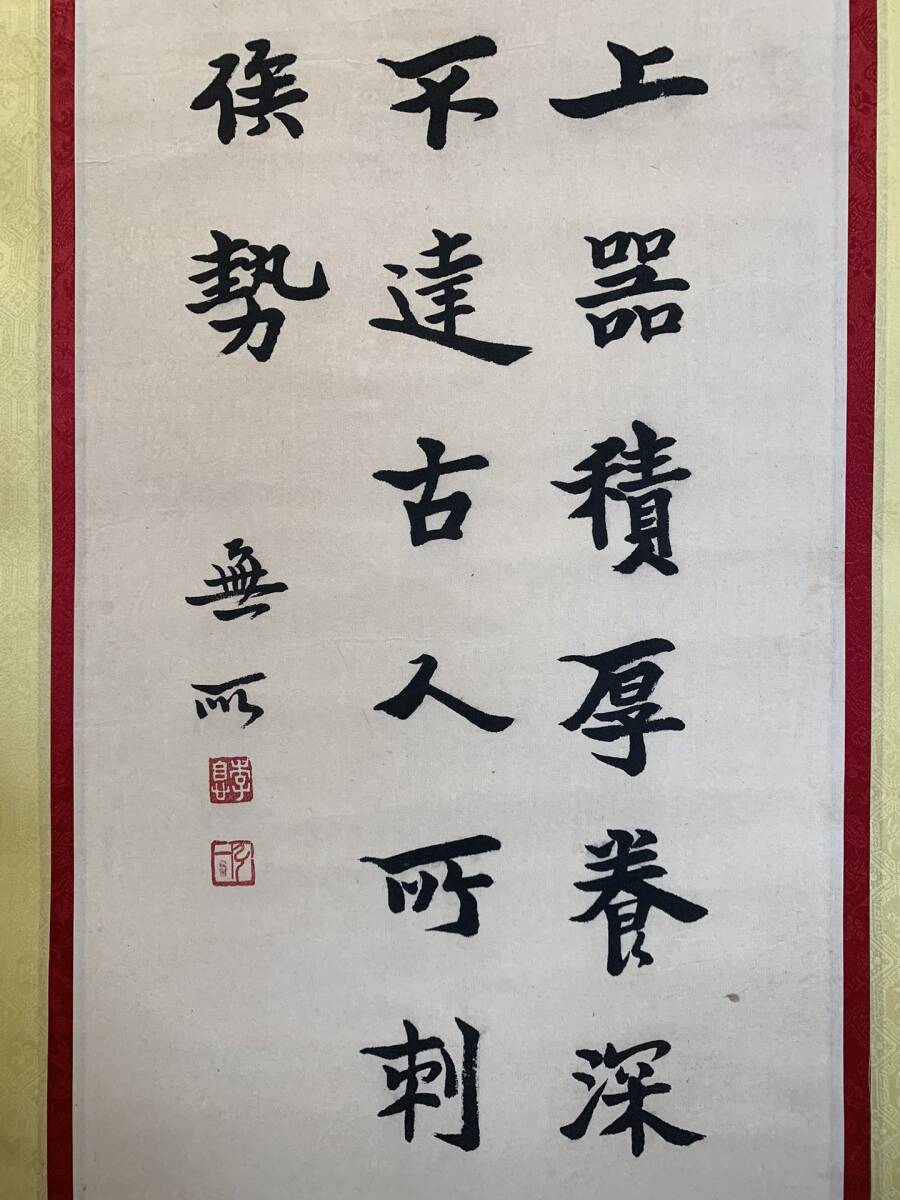 上器積厚養深
不達古人所刺
侯勢
無所